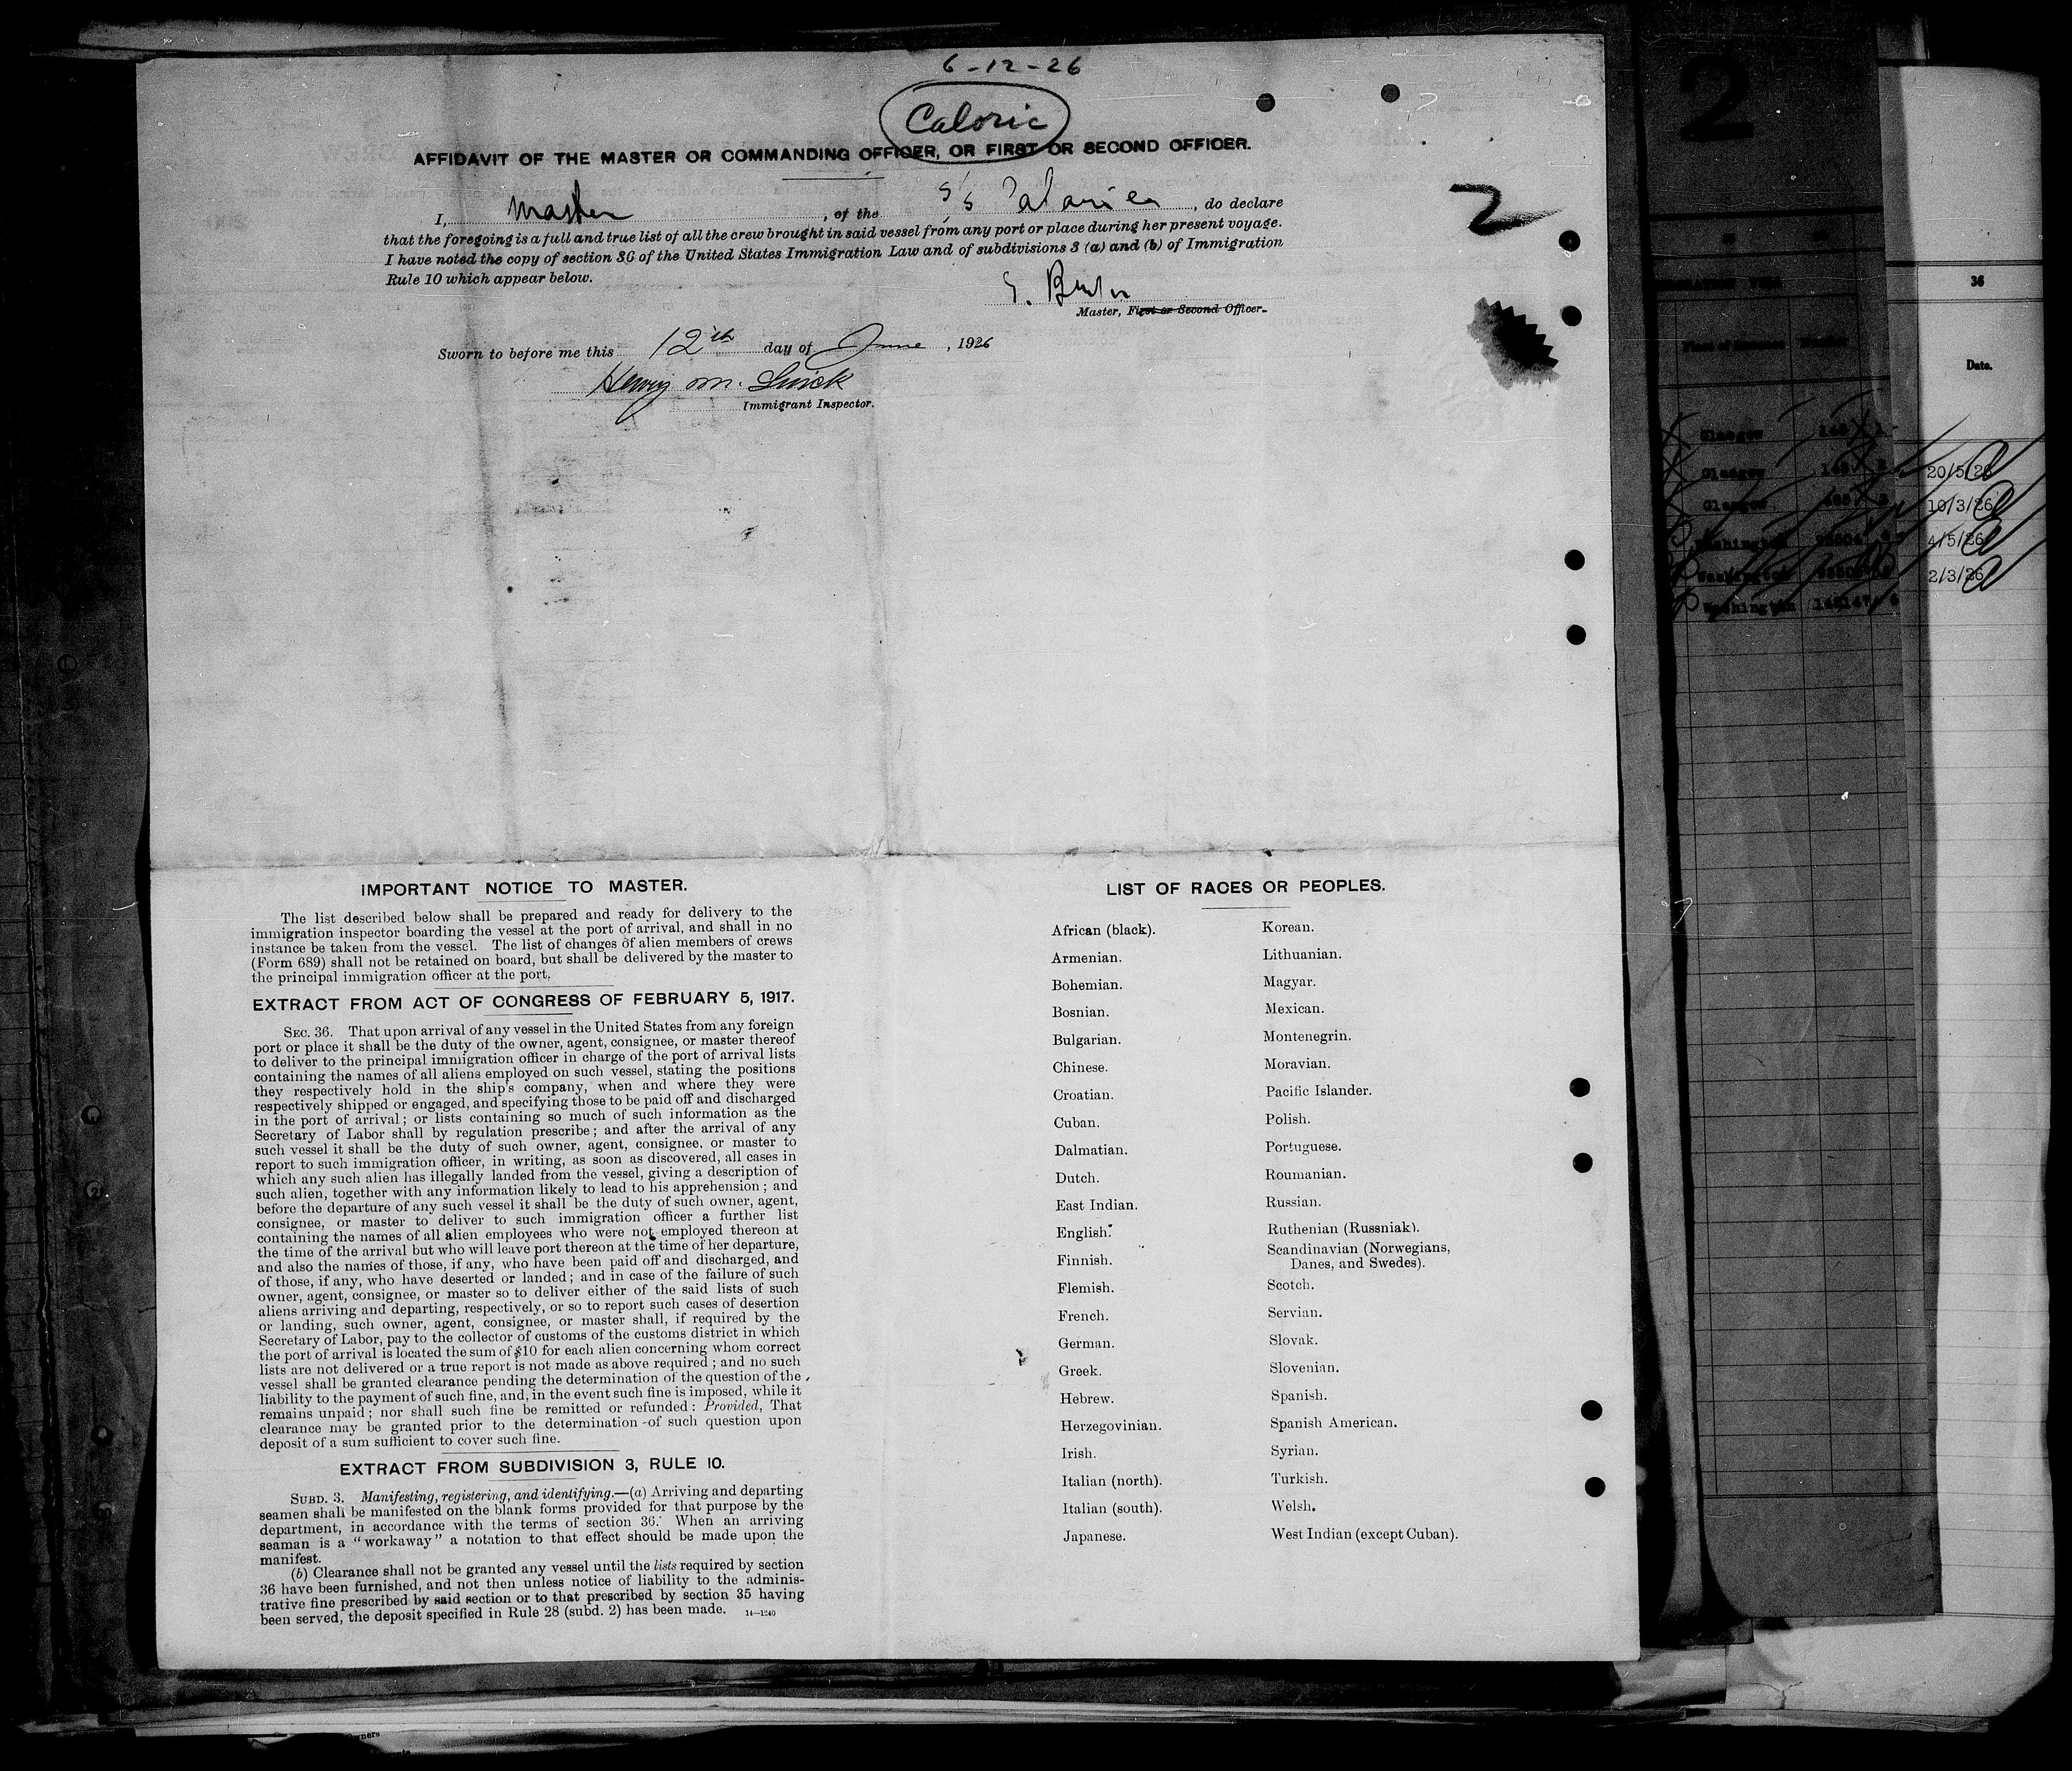 6-12-26
Caloric
AFFIDAVIT OF THE MASTER OR COMMANDING OFFICER, OR FIRST OR SECOND OFFICER.
I, Master, of the S/S, do declare
that the foregoing is a full and true list of all the crew brought in said vessel from any port or place during her present voyage.
I have noted the copy of section 36 of the United States Immigration Law and of subdivisions 3 (a) and (b) of Immigration
Rule 10 which appear below.
Master, First or Second Officer.
Sworn to before me this 12th day of June, 1926
Henry M.
Immigrant Inspector.
2
IMPORTANT NOTICE TO MASTER.
The list described below shall be prepared and ready for delivery to the
immigration inspector boarding the vessel at the port of arrival, and shall in no
instance be taken from the vessel. The list of changes of alien members of crews
(Form 689) shall not be retained on board, but shall be delivered by the master to
the principal immigration officer at the port.
EXTRACT FROM ACT OF CONGRESS OF FEBRUARY 5, 1917.
SEC. 36. That upon arrival of any vessel in the United States from any foreign
port or place it shall be the duty of the owner, agent, consignee, or master thereof
to deliver to the principal immigration officer in charge of the port of arrival lists
containing the names of all aliens employed on such vessel, stating the positions
they respectively hold in the ship's company, when and where they were
respectively shipped or engaged, and specifying those to be paid off and discharged
in the port of arrival; or lists containing so much of such information as the
Secretary of Labor shall by regulation prescribe; and after the arrival of any
such vessel it shall be the duty of such owner, agent, consignee, or master to
report to such immigration officer, in writing, as soon as discovered, all cases in
which any such alien has illegally landed from the vessel, giving a description of
such alien, together with any information likely to lead to his apprehension; and
before the departure of any such vessel it shall be the duty of such owner, agent,
consignee, or master to deliver to such immigration officer a further list
containing the names of all alien employees who were not employed thereon at
the time of the arrival but who will leave port thereon at the time of her departure,
and also the names of those, if any, who have been paid off and discharged, and
of those, if any, who have deserted or landed; and in case of the failure of such
owner, agent, consignee, or master so to deliver either of the said lists of such
aliens arriving and departing, respectively, or so to report such cases of desertion
or landing, such owner, agent, consignee, or master shall, if required by the
Secretary of Labor, pay to the collector of customs of the customs district in which
the port of arrival is located the sum of $10 for each alien concerning whom correct
lists are not delivered or a true report is not made as above required; and no such
vessel shall be granted clearance pending the determination of the question of the
liability to the payment of such fine, and, in the event such fine is imposed, while it
remains unpaid; nor shall such fine be remitted or refunded: Provided, That
clearance may be granted prior to the determination of such question upon
deposit of a sum sufficient to cover such fine.
EXTRACT FROM SUBDIVISION 3, RULE 10.
SUBD. 3. Manifesting, registering, and identifying.—(a) Arriving and departing
seamen shall be manifested on the blank forms provided for that purpose by the
department, in accordance with the terms of section 36. When an arriving
seaman is a "workaway" a notation to that effect should be made upon the
manifest.
(b) Clearance shall not be granted any vessel until the lists required by section
36 have been furnished, and not then unless notice of liability to the adminis-
trative fine prescribed by said section or to that prescribed by section 35 having
been served, the deposit specified in Rule 28 (subd. 2) has been made. 14—1240
LIST OF RACES OR PEOPLES.
African (black).
Armenian.
Bohemian.
Bosnian.
Bulgarian.
Chinese.
Croatian.
Cuban.
Dalmatian.
Dutch.
East Indian.
English.
Finnish.
Flemish.
French.
German.
Greek.
Hebrew.
Herzegovinian.
Irish.
Italian (north).
Italian (south).
Japanese.
Korean.
Lithuanian.
Magyar.
Mexican.
Montenegrin.
Moravian.
Pacific Islander.
Polish.
Portuguese.
Roumanian.
Russian.
Ruthenian (Russniak).
Scandinavian (Norwegians,
Danes, and Swedes).
Scotch.
Servian.
Slovak.
Slovenian.
Spanish.
Spanish American.
Syrian.
Turkish.
Welsh.
West Indian (except Cuban).
2
Glasgow
Glasgow
Glasgow
Washington
Washington
Washington
36
Date.
20/5/26
10/3/26
4/5/26
2/3/26